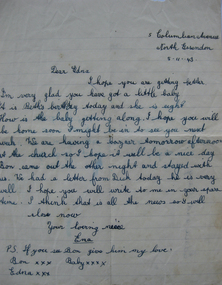 Columbian Avenue
North Essendon
2.11.43
Dear Edna
I hope you are getting better.
I'm very glad you have got a little baby.
It is birthday today and she is eight
How is the baby getting along. I hope you will
be home soon I might be air to see you next
week. We are having a tomorrow afternoon
at the church so I hope it will be a nice day.
came out the other night and stayed with
us. We had a letter from today he is very
well. I hope you will write to me in your spare
time. I think that is all the news so I will
close now
Your loving niece
P.S. If you see Bon give him my love.
Bon xxx Baby xxxx
Edna xxx